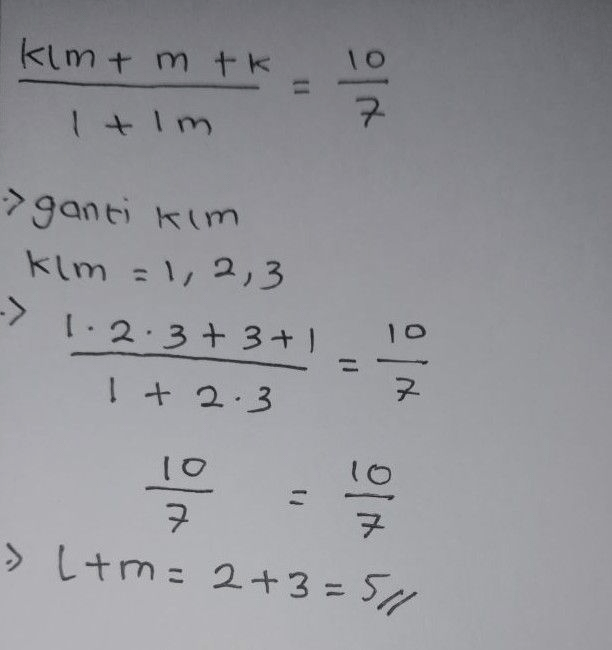 klm + m + k / 1 + lm = 10/7
=> ganti klm
klm = 1, 2, 3
=> 1 · 2 · 3 + 3 + 1 / 1 + 2 · 3 = 10/7
10/7 = 10/7
=> l + m = 2 + 3 = 5 //